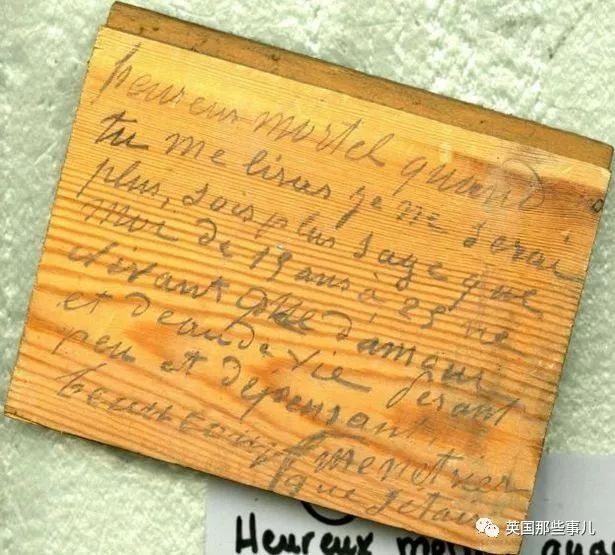 heureux mortel quand
tu me liras je ne serai
plus, sois plus sage que
moi de 19 ans à 25 ne
vivant que d'amour
et d'eau de vie ferant
peu et dépensant
beaucoup menetrier
que j'étais
Heureux
英国那些事儿